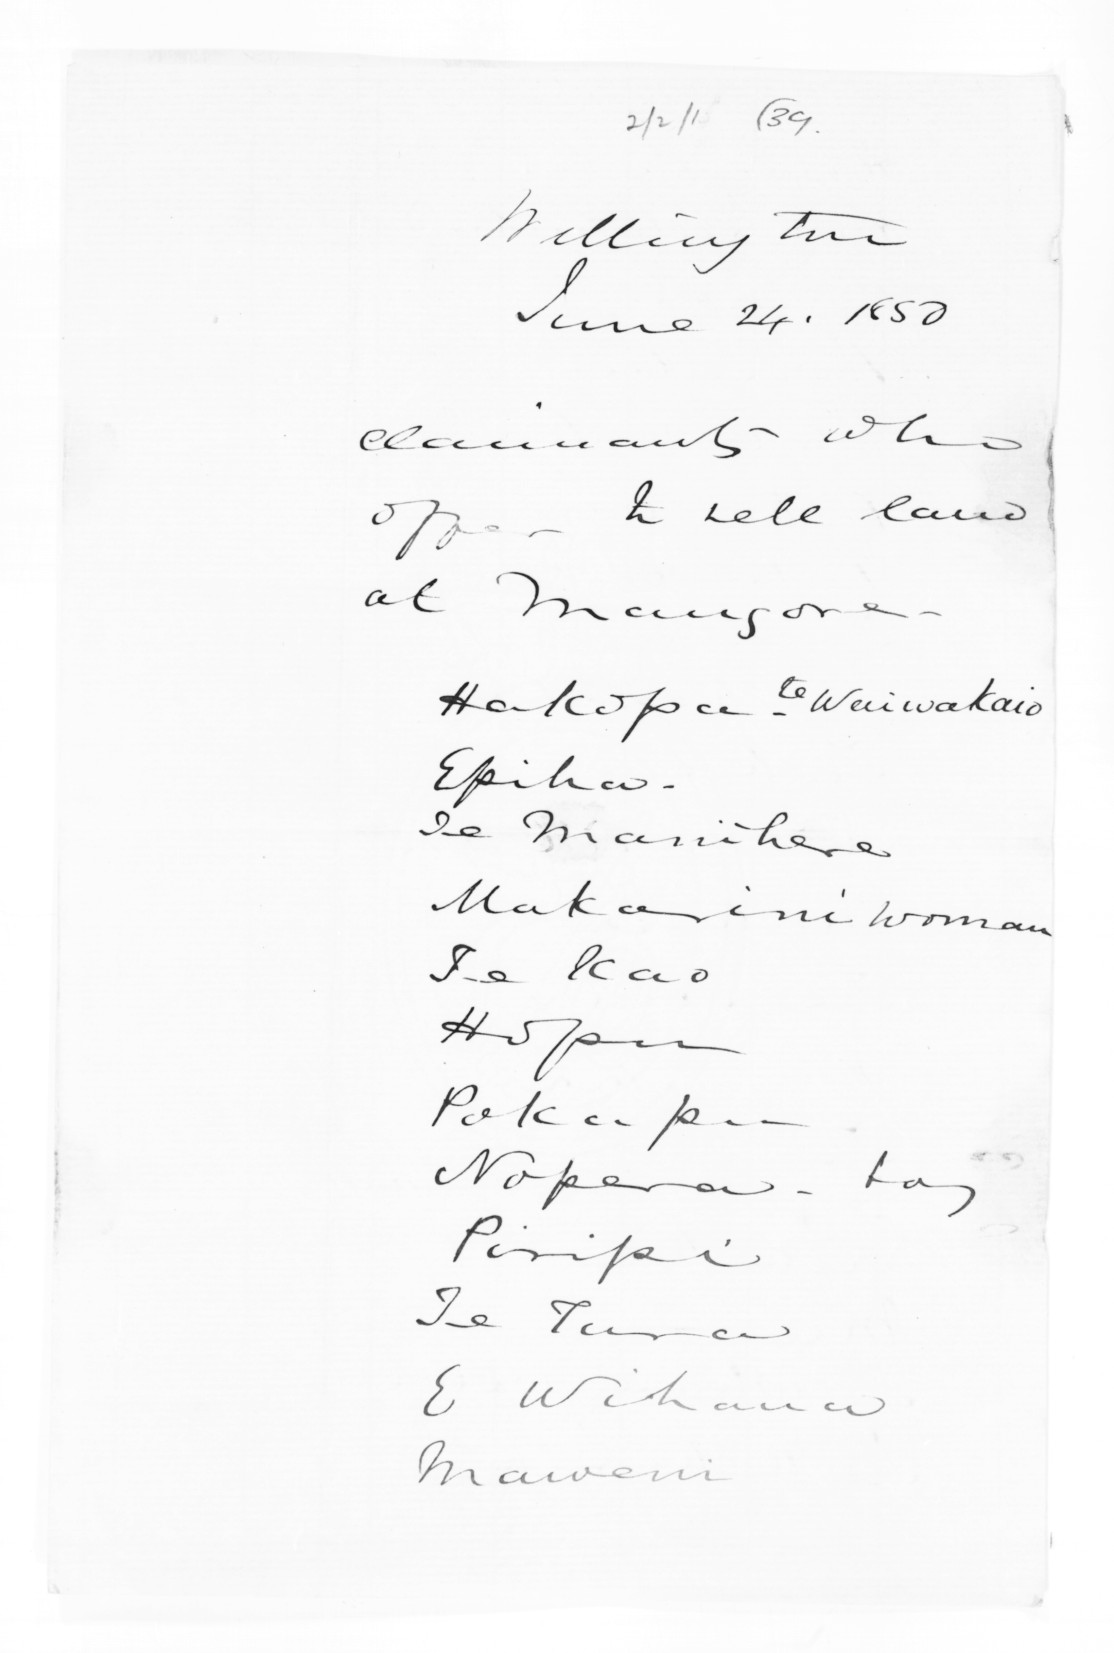 2/2/1 (39.
Wellington
June 24. 1850
claimants who
offer to sell land
at Mangore -
Hakopa te Waiwakaio
Epiha -
Te Manihere
Makarini woman
Te Kao
Hopu
Pokapu
Nopera - boy
Piripi
Te Tura
E Wihana
Maweni